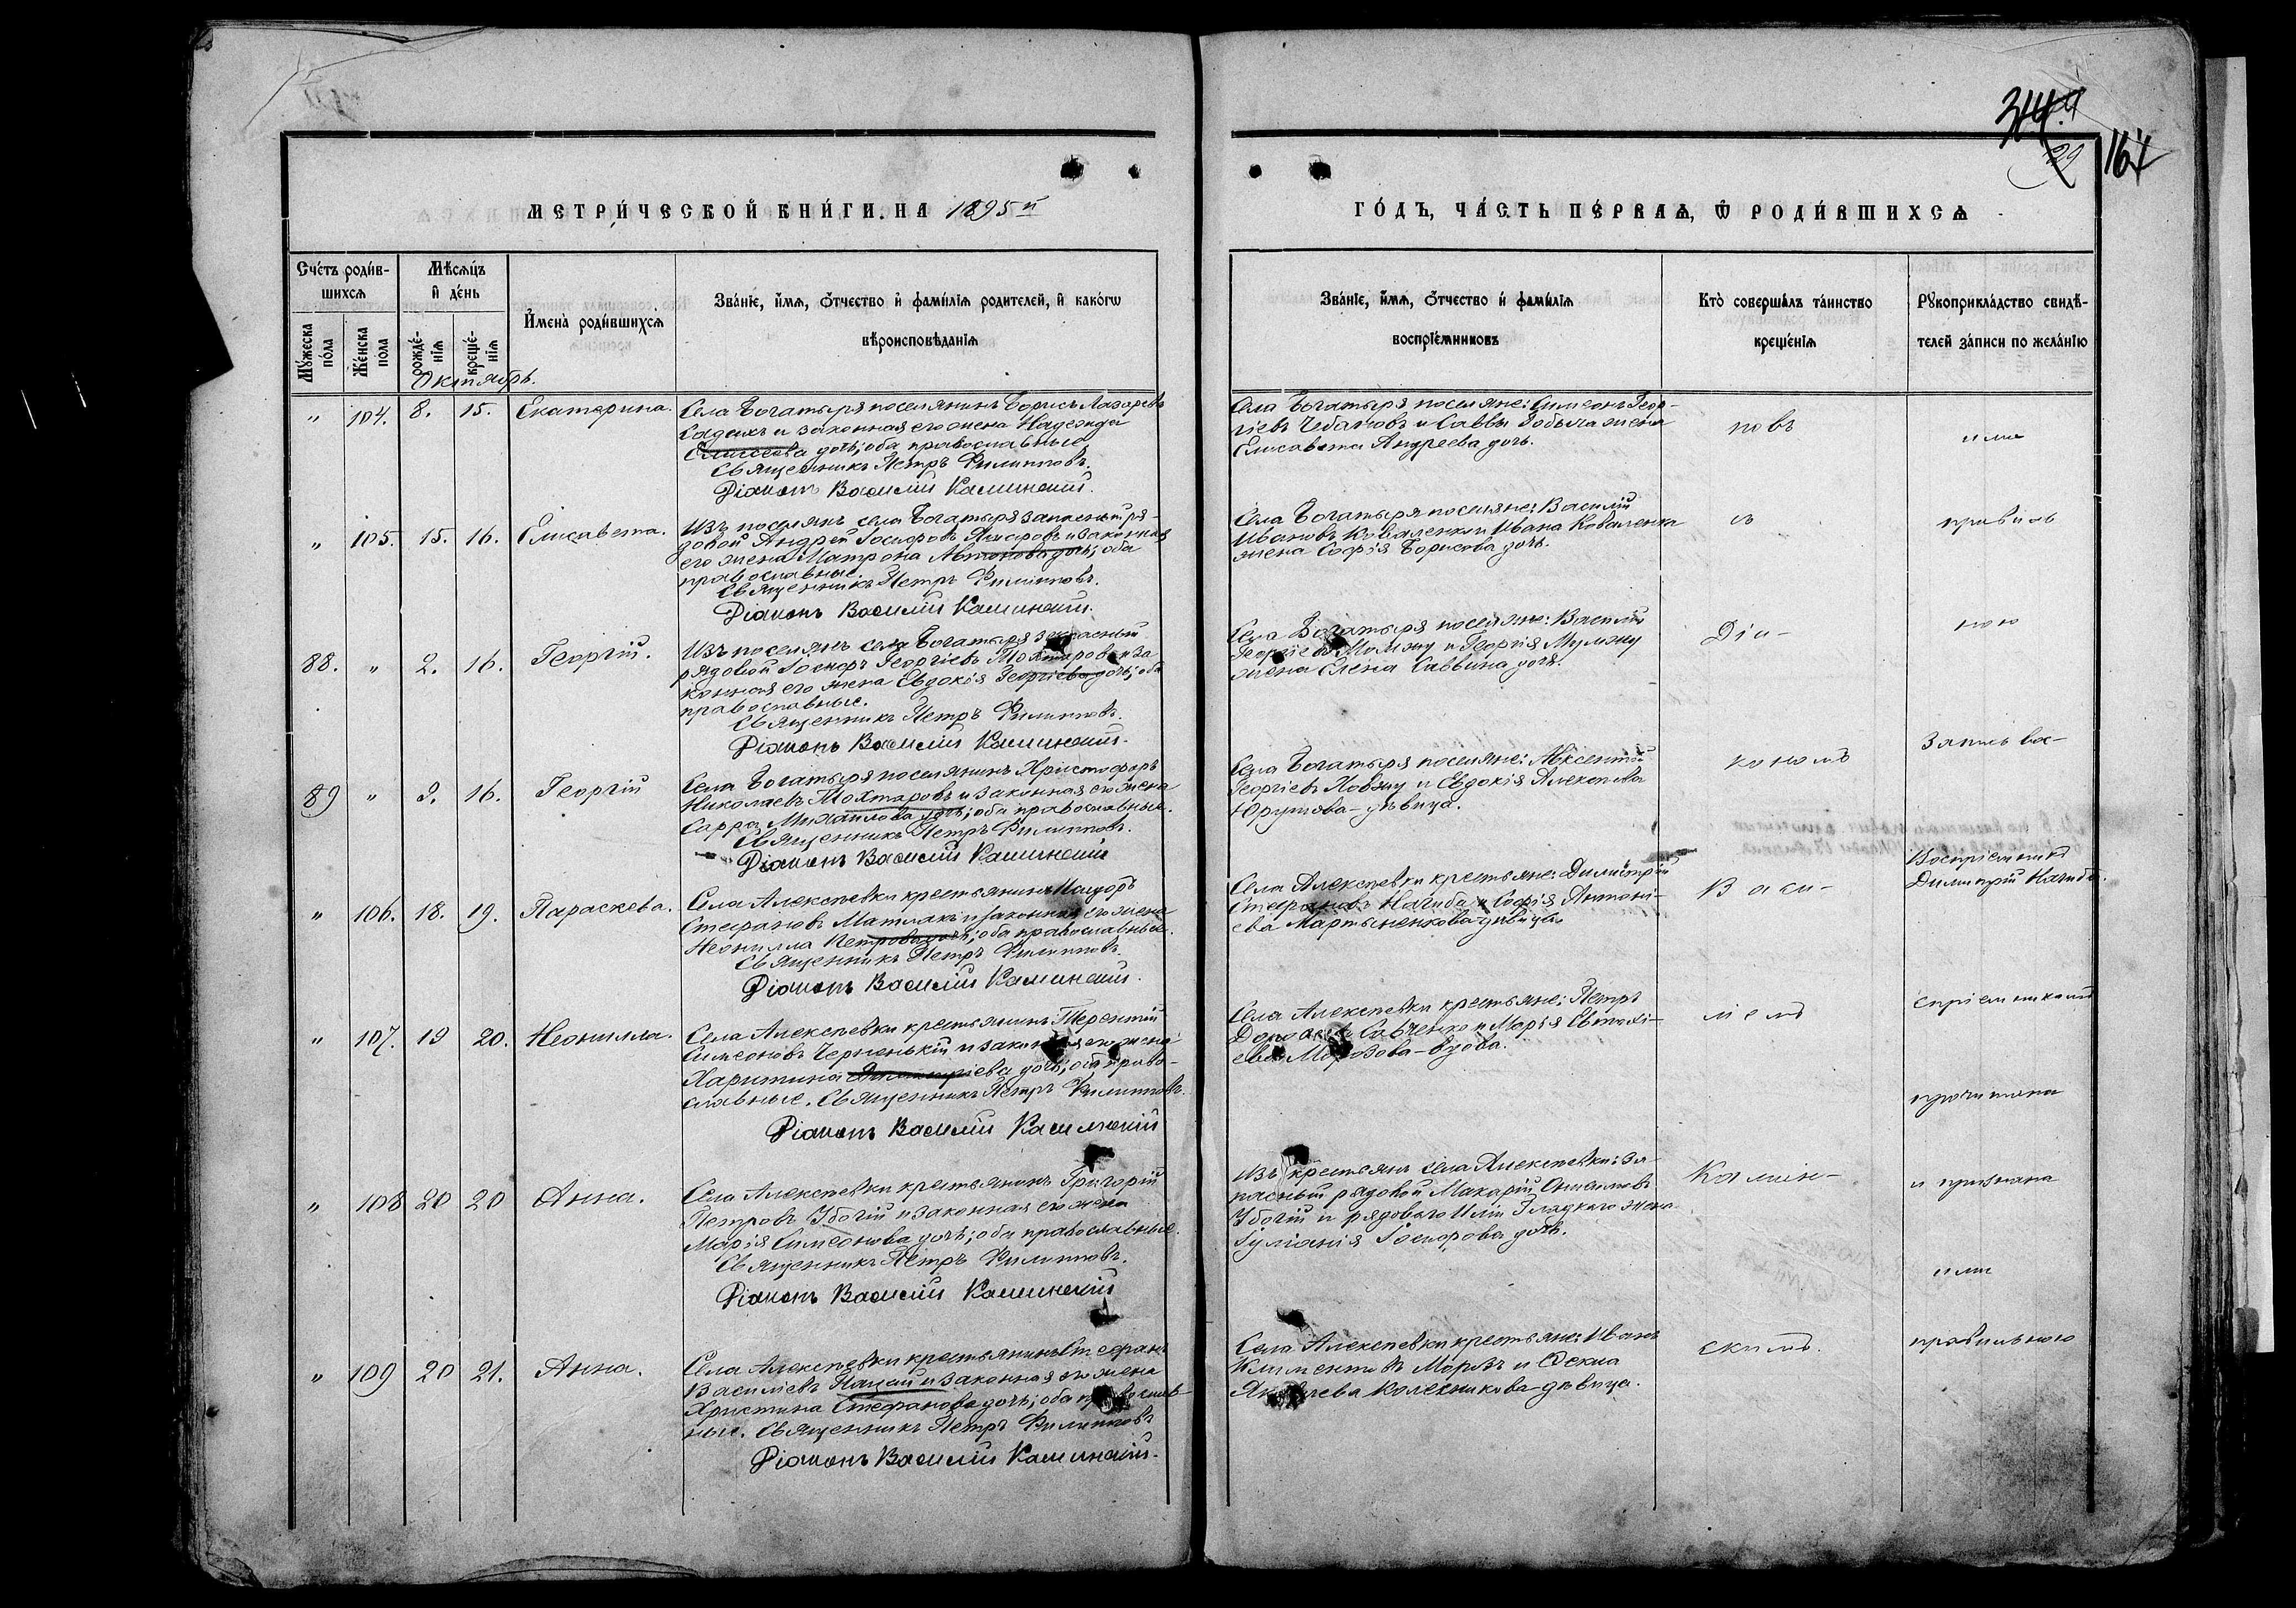 314
29
167
МЕТРИ́ЧЕСКОЙ КНИ́ГИ НА 1895й
ГО́ДЪ, ЧА́СТЬ ПЕ́РВАѦ, Ѽ РОДИ́ВШИХСѦ
Сче́тъ роди́в-
шихсѧ
Мꙋ́жеска по́ла
Же́нска пола
Мѣ́сѧцъ
и҆ де́нь
рожде́-нїѧ
креще́-нїѧ
И҆мена̀ роди́вшихсѧ
Зва́нїе, и҆́мѧ, ѻ҆́тчество и҆ фами́лїѧ родителей, и҆ како́гѡ
вѣроисповѣданїѧ
Зва́нїе, и҆́мѧ, ѻ҆́тчество и҆ фами́лїѧ
воспрїе́мниковъ
Кто̀ соверша́лъ та́инство
креще́нїѧ
Рꙋкоприкла́дство свидѣ́-
телей за́писи по жела́нїю
Октябрь.
" 104. 8. 15. Екатерина.
Села Богатыря поселянинъ Борисъ Лазаревъ
и законная его жена Надежда
Елисеева дочь; оба православные
Священникъ Петръ Филипповъ.
Діаконъ Василій Калинскій.
Села Богатыря поселяне: Симеонъ Геор-
гіевъ Чебановъ и Саввы жена
Елисавета Андреева дочь.
" 105. 15. 16. Елисавета.
Изъ поселянъ села Богатыря запасный ря-
довой Андрей Іосифовъ и законная
его жена Матрона дочь; оба
православные.
Священникъ Петръ Филипповъ.
Діаконъ Василій Калинскій.
Села Богатыря поселяне: Василій
Ивановъ Коваленко и Ивана Коваленка
жена Софія Борисова дочь.
88. " 2. 16. Георгій.
Изъ поселянъ села Богатыря запасный
рядовой Іосифъ Георгіевъ Тохтаровъ и за
конная его жена Евдокія Георгіева дочь; оба
православные.
Священникъ Петръ Филипповъ.
Діаконъ Василій Калинскій.
Села Богатыря поселяне: Василій
Георгіевъ и Георгія
жена Елена Саввина дочь.
Діа-
89 " 9. 16. Георгій
Села Богатыря поселянинъ Христофоръ
Николаевъ Тохтаровъ и законная его жена
Сарра Михаилова дочь; оба православные.
Священникъ Петръ Филипповъ.
Діаконъ Василій Калинскій
Села Богатыря поселяне: Авксентій
Георгіевъ и Евдокія Алексѣева
дѣвица.
кономъ
Запись вос-
" 106. 18. 19. Параскева.
Села Алексѣевки крестьянинъ
Стефановъ Матлакъ и законная его жена
Неонилла Петрова дочь; оба православные.
Священникъ Петръ Филипповъ.
Діаконъ Василій Калинскій.
Села Алексѣевки крестьяне: Димитрій
Стефановъ Нагиба и Софія Антоні-
ева Мартыненкова дѣвица.
Васи-
Воспріемникъ
Димитрій Нагиба.
" 107. 19 20. Неонилла.
Села Алексѣевки крестьянинъ Терентій
Симеоновъ Черненькій и законная его жена
Харитина Димитріева дочь; оба право-
славные. Священникъ Петръ Филипповъ.
Діаконъ Василій Калинскій
Села Алексѣевки крестьяне: Петръ
Савченко и Марія Евтихі-
ева Морозова - вдова.
ліемъ
спріемниками
прочитана
" 108 20 20 Анна.
Села Алексѣевки крестьянинъ Григорій
Петровъ Убогій и законная его жена
Марія Симеонова дочь; оба православные.
Священникъ Петръ Филипповъ.
Діаконъ Василій Калинскій
Изъ крестьянъ села Алексѣевки: за-
пасный рядовой Макарій
Убогій и рядового Иліи Гладкаго жена
Іуліанія Іосифова дочь.
Калин-
и признана
ими
" 109 20 21. Анна.
Села Алексѣевки крестьянинъ Стефанъ
Василіевъ и законная его жена
Христина Стефанова дочь; оба православ-
ные. Священникъ Петръ Филипповъ
Діаконъ Василій Калинскій.
Села Алексѣевки крестьяне: Иванъ
Климентіевъ Морозъ и Фекла
Яковлева Колесникова дѣвица.
скимъ.
правильною